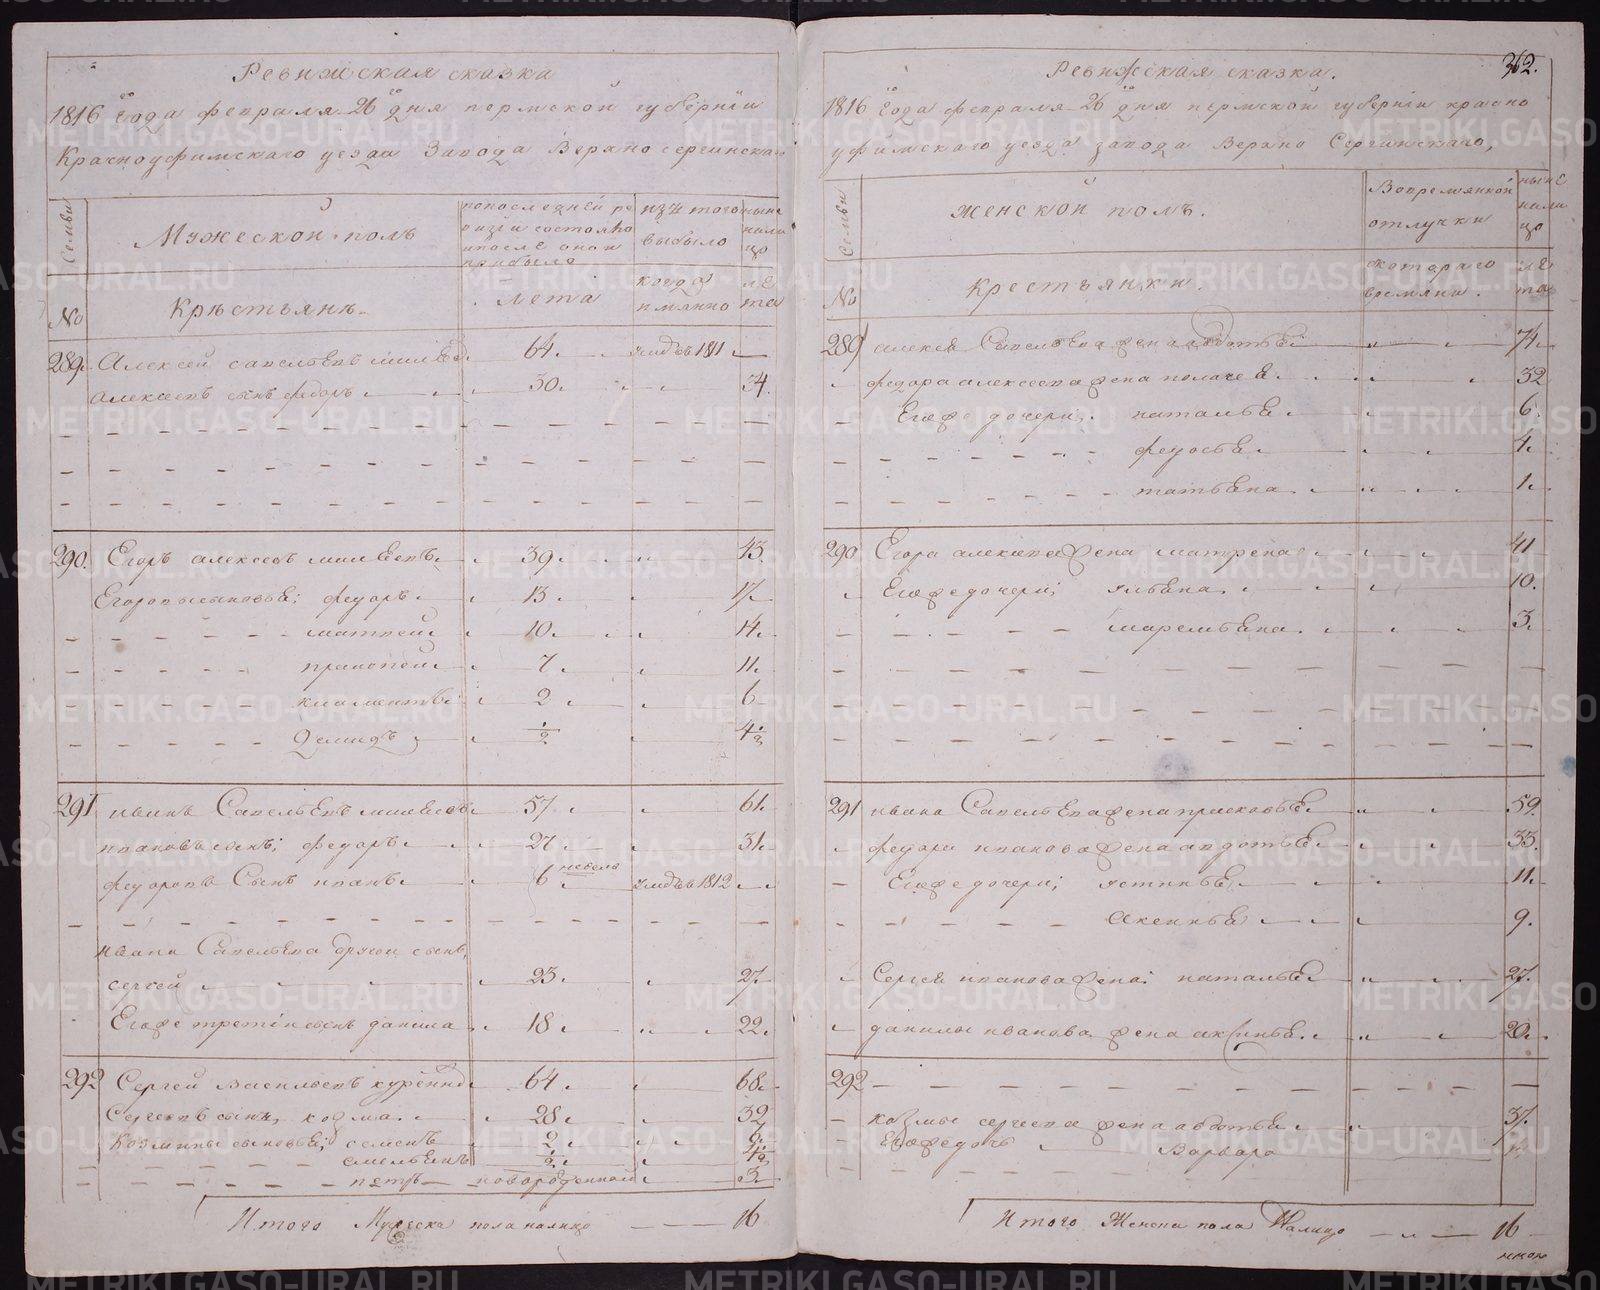 Ревижская сказка
1816 года февраля 26 дня пермской губернiи
Красноуфимскаго уезда Завода Верхно сергинскаго
Семьи
Мужеской полъ
попоследней ре
визiи состояло
ипосле оной
прибыло
изъ того
выбыло
ныне
нали
цо
№
Крѣстьянѣ
лета
когда
имянно
ле
та
289. Алексей савельевъ 64. 1811
алексеевъ сынъ федоръ 30. 34.
290. Егоръ алексеевъ 39. 43.
Егоровы сыновья; федоръ 13 17
матвей 10. 14.
пракопей 7 11.
климентей 2 6
Демидъ 1/2 4 1/2
291 иванъ Савельевъ 57. 61.
ивановъ сынъ; федоръ 27 31.
федоровъ Сынъ иванъ 6 недель 1812
ивана Савельева другой сынъ,
сергей 23. 27.
Егоже третiй сынъ данила 18 22.
292 Сергей Васильевъ 64 68.
Сергеевъ сынъ козма 28 32
Козмины сыновья; семенъ 2 6
емельянъ 1/2 4 1/2
петръ новорожденной 3
Итого Мужеска пола налицо 16
362.
Ревижская сказка.
1816 года февраля 26 дня пермской губернiи красно
уфимскаго уезда завода Верхно Сергинскаго,
Семьи
женской полъ.
Вовремянной
отлучки
ныне
нали
цо
№
крестьянки.
скотораго
времяни.
ле
та
289 алексея Савельева жена авдотья 74
федора алексеева жена 32
Егоже дочери; наталья 6.
федосья 4.
татьяна 1.
290. Егора алексеева жена матрена 41
Егоже дочери; ульяна 10.
маремьяна 3.
291 ивана Савельева жена прасковья 59.
федора иванова жена авдотья 33.
Егоже дочери; устинья 11.
Аксинья 9.
Сергея иванова жена; наталья 27.
данилы иванова жена аксинья 20.
292
козмы сергеева жена авдотья 37.
Егоже дочь Варвара
Итого Женска пола Налицо 16